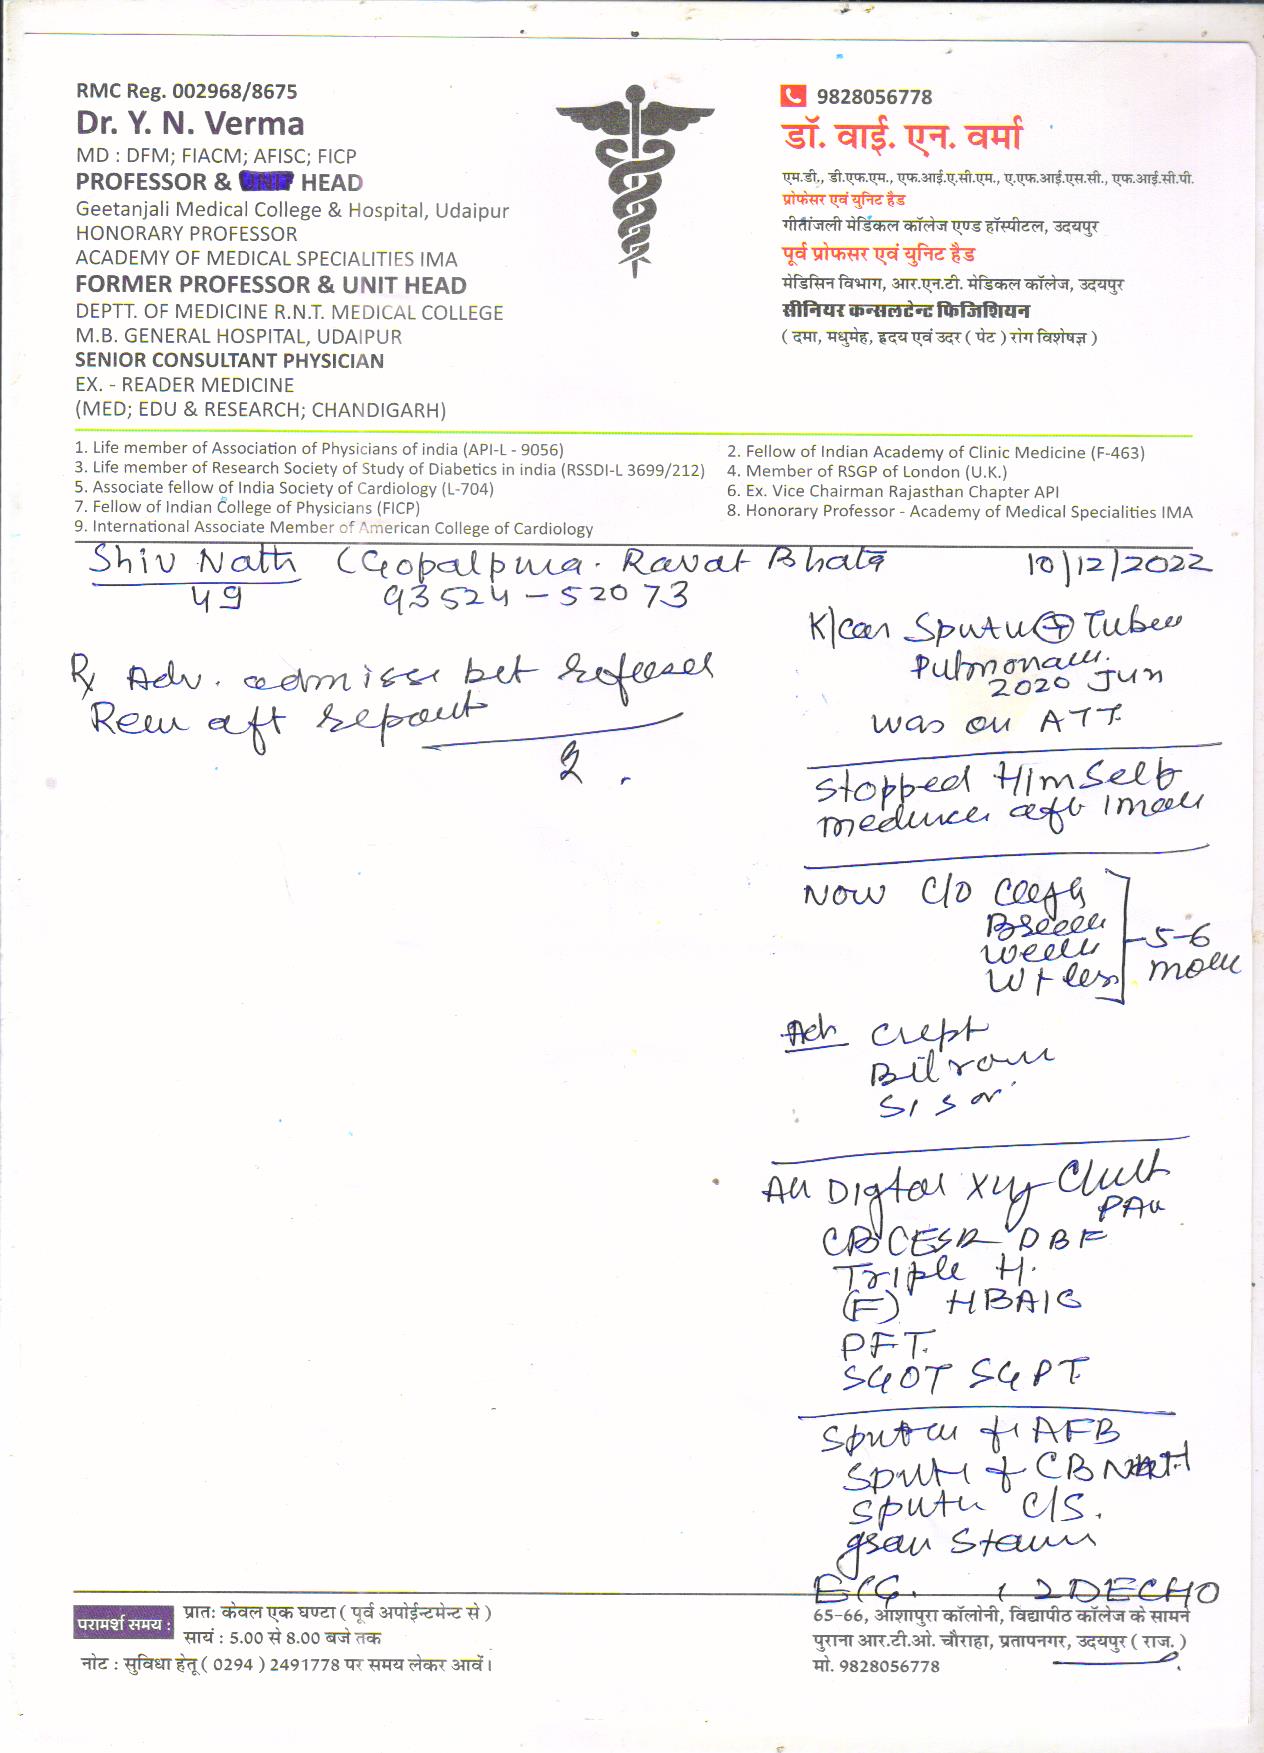 RMC Reg. 002968/8675
Dr. Y. N. Verma
MD : DFM; FIACM; AFISC; FICP
PROFESSOR & HEAD
Geetanjali Medical College & Hospital, Udaipur
HONORARY PROFESSOR
ACADEMY OF MEDICAL SPECIALITIES IMA
FORMER PROFESSOR & UNIT HEAD
DEPTT. OF MEDICINE R.N.T. MEDICAL COLLEGE
M.B. GENERAL HOSPITAL, UDAIPUR
SENIOR CONSULTANT PHYSICIAN
EX. - READER MEDICINE
(MED; EDU & RESEARCH; CHANDIGARH)
9828056778
डॉ. वाई. एन. वर्मा
एम.डी., डी.एफ.एम., एफ.आई.ए.सी.एम., ए.एफ.आई.एस.सी., एफ.आई.सी.पी.
प्रोफेसर एवं युनिट हैड
गीतांजली मेडिकल कॉलेज एण्ड हॉस्पीटल, उदयपुर
पूर्व प्रोफसर एवं युनिट हैड
मेडिसिन विभाग, आर.एन.टी. मेडिकल कॉलेज, उदयपुर
सीनियर कन्सलटेन्ट फिजिशियन
( दमा, मधुमेह, ह्रदय एवं उदर ( पेट ) रोग विशेषज्ञ )
1. Life member of Association of Physicians of india (API-L - 9056)
2. Fellow of Indian Academy of Clinic Medicine (F-463)
3. Life member of Research Society of Study of Diabetics in india (RSSDI-L 3699/212)
4. Member of RSGP of London (U.K.)
5. Associate fellow of India Society of Cardiology (L-704)
6. Ex. Vice Chairman Rajasthan Chapter API
7. Fellow of Indian College of Physicians (FICP)
8. Honorary Professor - Academy of Medical Specialities IMA
9. International Associate Member of American College of Cardiology
Shiv Nath (Gopalpura. Ravat Bhata 10/12/2022
49 93524-52073
Rx Adv. admiss but refused
Rev aft report
K/ca Sputu + Tuber
Pulmonary
2020 Jun
was on ATT.
Stopped Himself
aft 1
NOW C/O Cough
5-6
Wt less
Crept
Bil
All Digtal Xry Chest
PAv
CBC ESR PBF
Triple H.
(F) HBA1C
PFT.
SGOT SGPT
Sputu f AFB
Sputu f CBNAAT
Sputu C/S.
gram Stain
ECG. , 2DECHO
परामर्श समय :
प्रात: केवल एक घण्टा ( पूर्व अपोईन्टमेन्ट से )
सायं : 5.00 से 8.00 बजे तक
नोट : सुविधा हेतू ( 0294 ) 2491778 पर समय लेकर आवें।
65-66, आशापुरा कॉलोनी, विद्यापीठ कॉलेज के सामने
पुराना आर.टी.ओ. चौराहा, प्रतापनगर, उदयपुर ( राज. )
मो. 9828056778